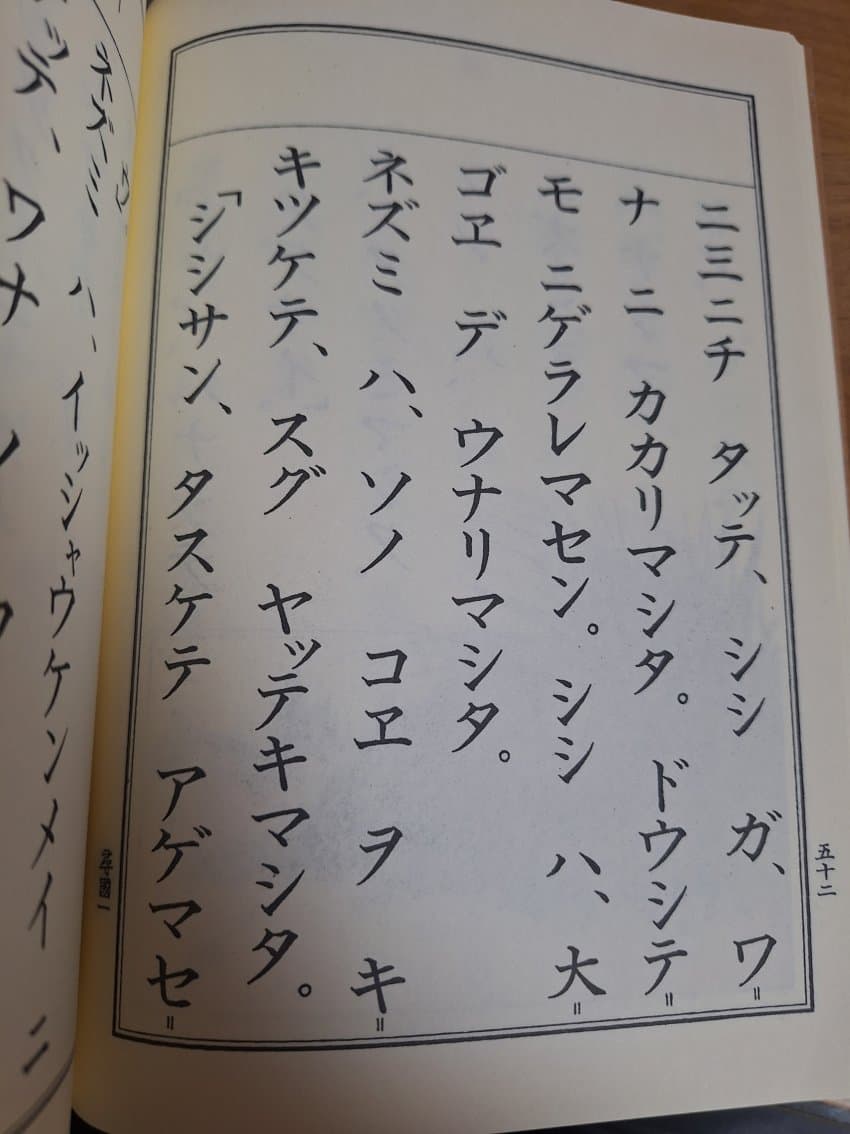 五十二
二三ニチ タッテ、 シシ ガ、 ワ＝
ナ ニ カカリマシタ。 ドウシテ＝
モ ニゲラレマセン。 シシ ハ、 大＝
ゴヱ デ ウナリマシタ。
ネズミ ハ、 ソノ コヱ ヲ キ＝
キツケテ、 スグ ヤッテキマシタ。
「シシサン、 タスケテ アゲマセ＝
ネズミ ハ、 イッシャウケンメイ ニ
ッテ、 ワナ ノ